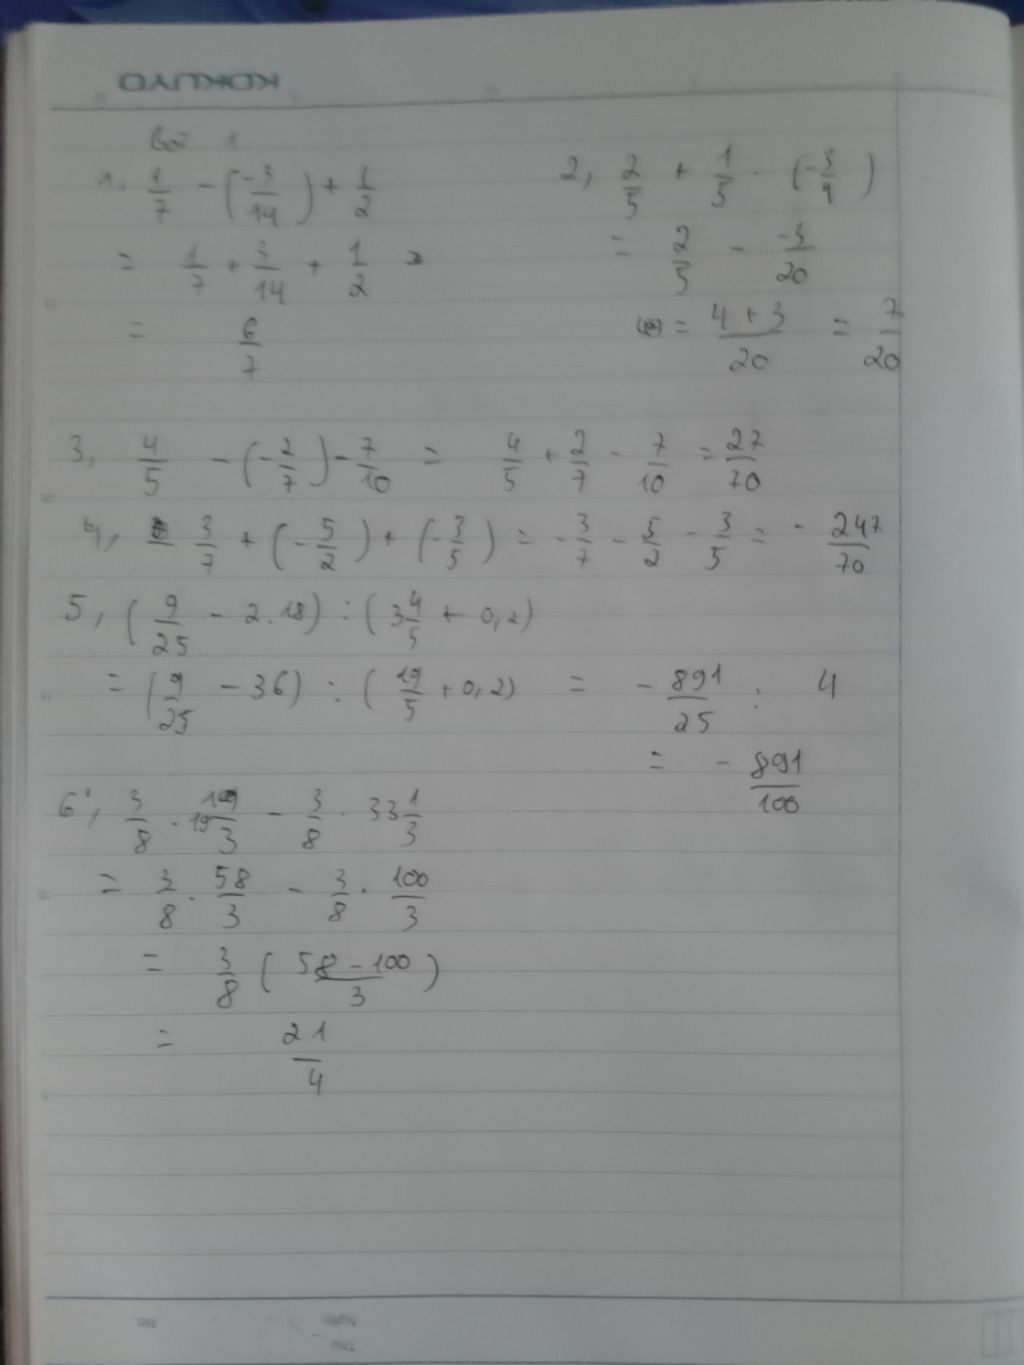 KOKUYO
Bài 1
1, 1/7 - (-3/14) + 1/2
= 1/7 + 3/14 + 1/2
= 6/7
2, 2/5 + 1/5 . (-3/4)
= 2/5 - -3/20
= (4 + 3)/20 = 7/20
3, 4/5 - (-2/7) - 7/10 = 4/5 + 2/7 - 7/10 = 27/70
4, 3/7 + (-5/2) + (-3/5) = - 3/7 - 5/2 - 3/5 = - 247/70
5, (9/25 - 2.18) : (3 4/5 + 0,2)
= (9/25 - 36) : (19/5 + 0,2) = - 891/25 : 4
= - 891/100
6, 3/8 . 19 1/3 - 3/8 . 33 1/3
= 3/8 . 58/3 - 3/8 . 100/3
= 3/8 ( (58 - 100)/3 )
= 21/4
No
Ngày
Thứ